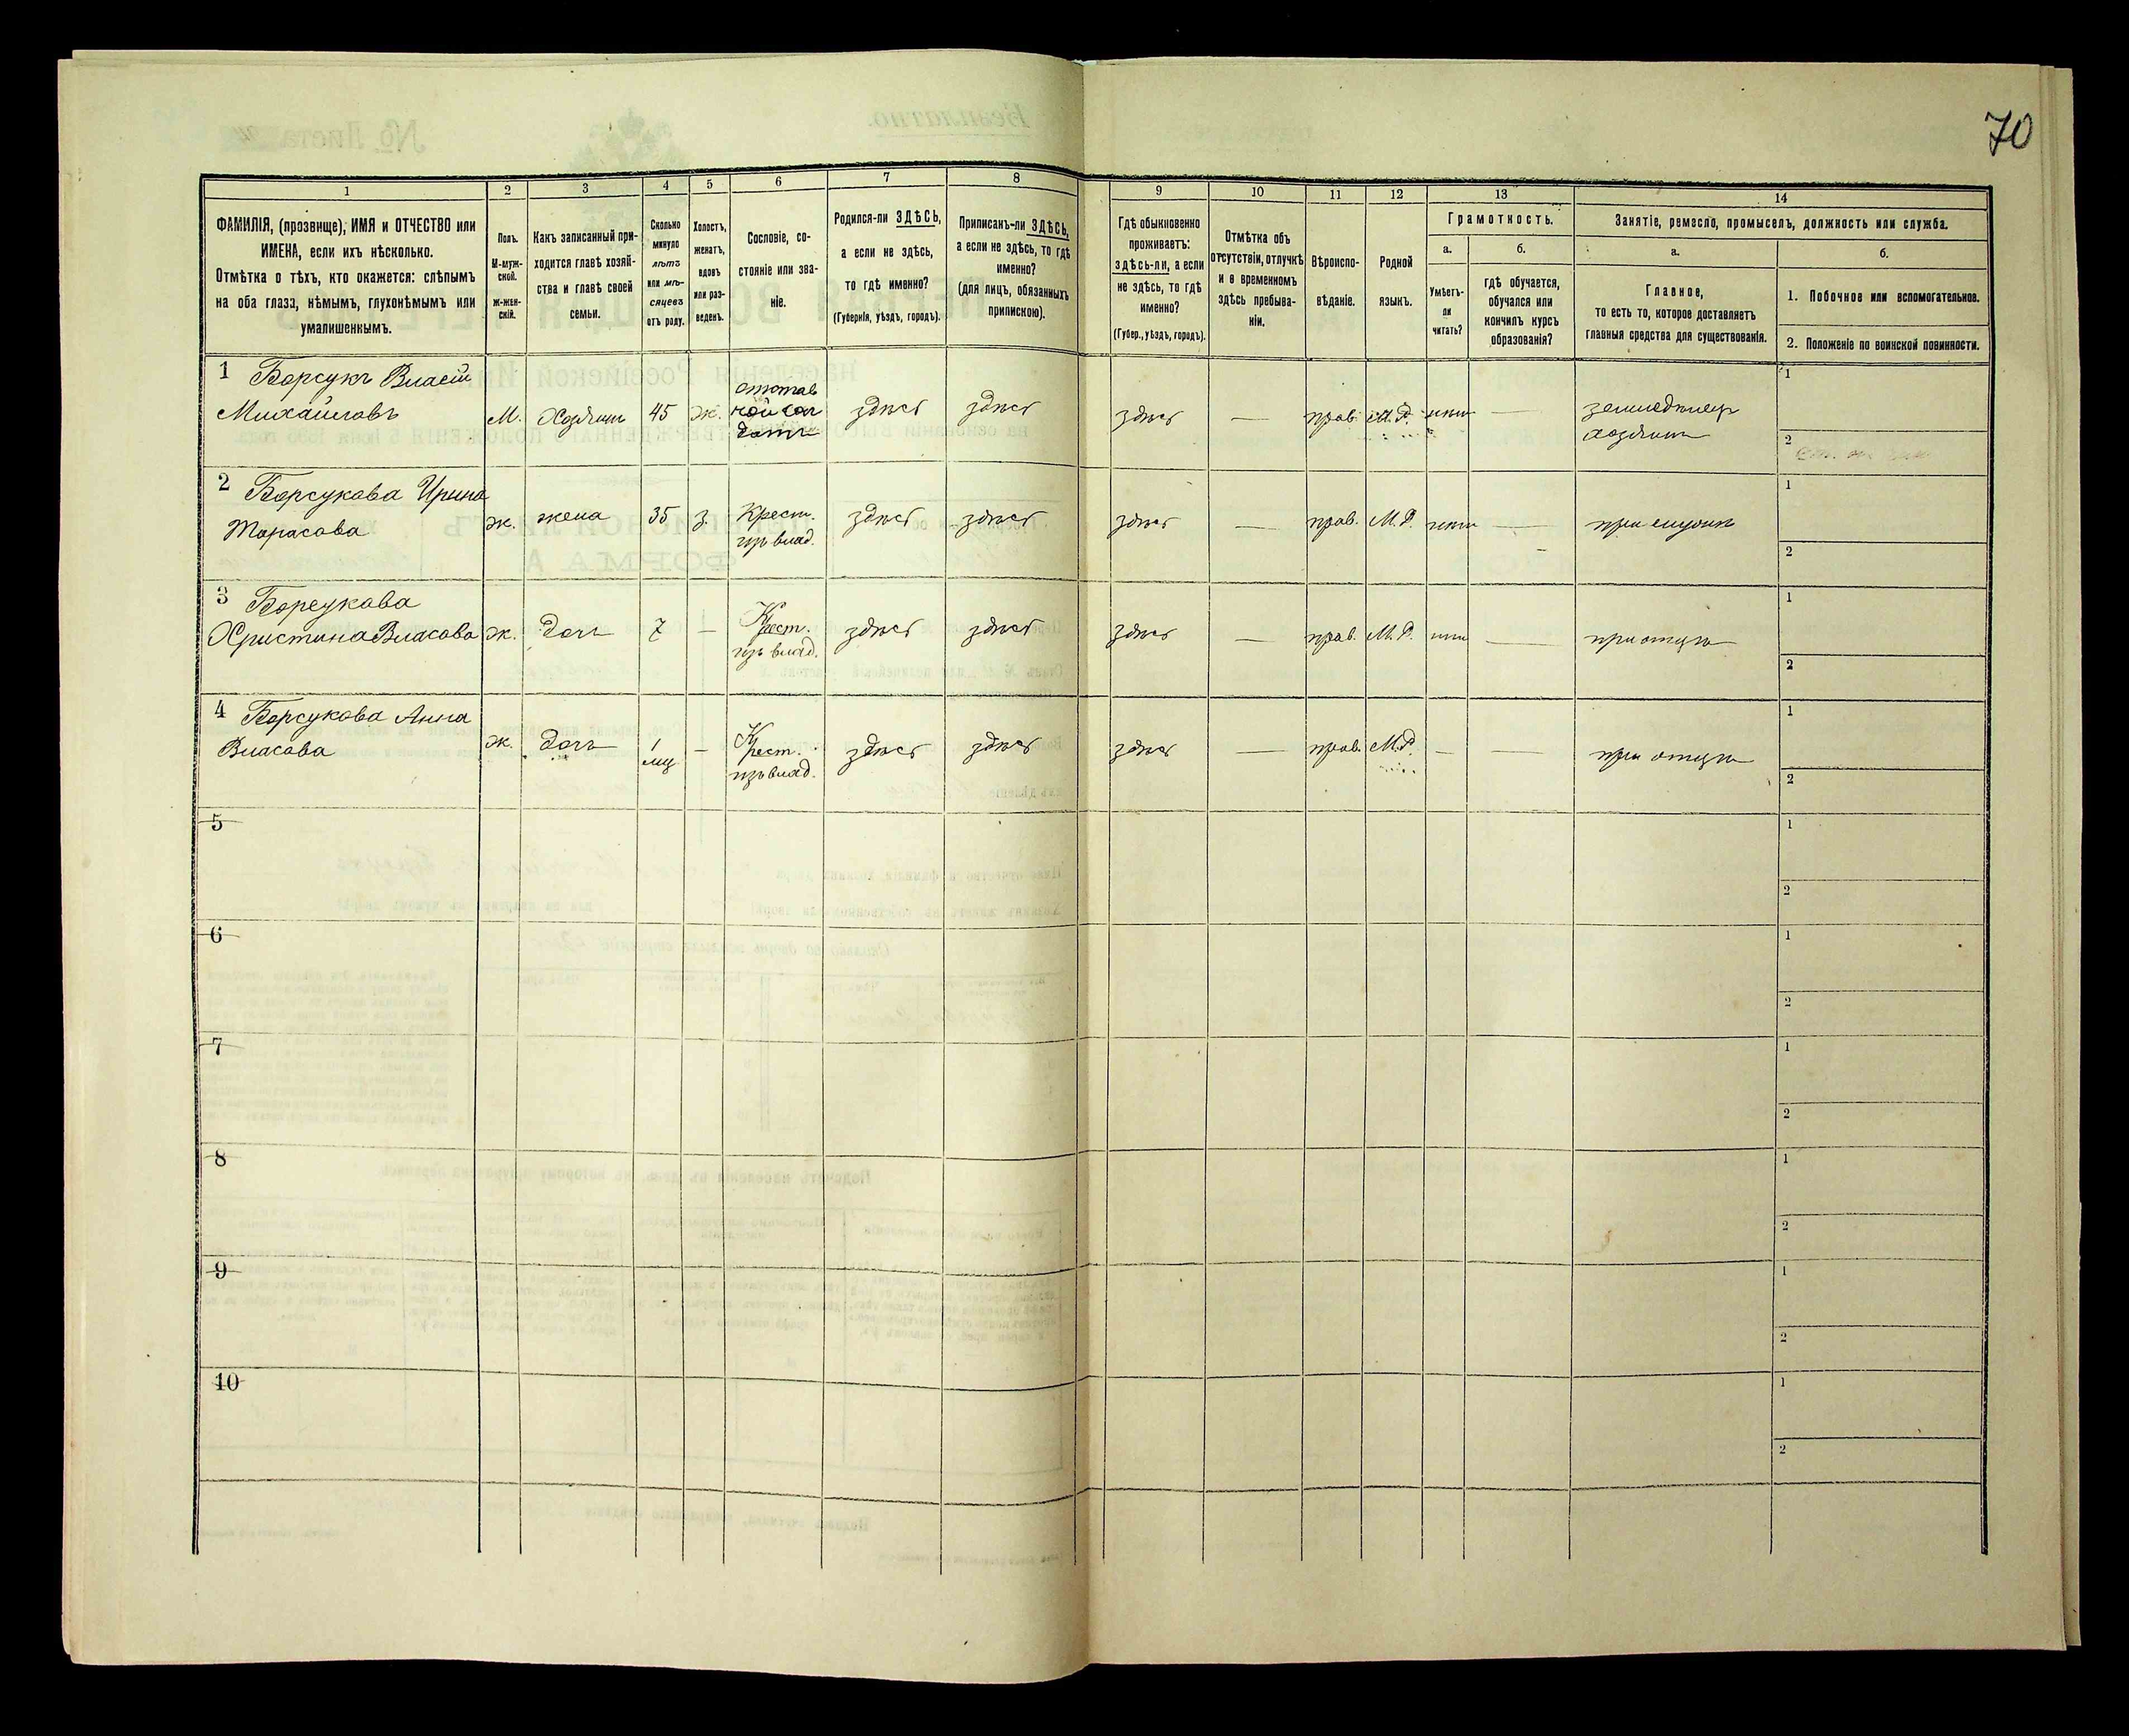 70
1
2
3
4
5
6
7
8
9
10
11
12
13
14
ФАМИЛІЯ, (прозвище), ИМЯ и ОТЧЕСТВО или
ИМЕНА, если ихъ нѣсколько.
Отмѣтка о тѣхъ, кто окажется: слѣпымъ
на оба глаза, нѣмымъ, глухонѣмымъ или
умалишеннымъ.
Полъ.
М-муж-
ской.
Ж-жен-
скій.
Какъ записанный при-
ходится главѣ хозяй-
ства и главѣ своей
семьи.
Сколько
минуло
лѣтъ
или мѣ-
сяцевъ
отъ роду.
Холостъ,
женатъ,
вдовъ
или раз-
веденъ.
Сословіе, со-
стояніе или зва-
ніе.
Родился-ли ЗДѢСЬ,
а если не здѣсь,
то гдѣ именно?
(Губернія, уѣздъ, городъ).
Приписанъ-ли ЗДѢСЬ,
а если не здѣсь, то гдѣ
именно?
(для лицъ, обязанныхъ
припискою).
Гдѣ обыкновенно
проживаетъ:
здѣсь-ли, а если
не здѣсь, то гдѣ
именно?
(Губер., уѣздъ, городъ).
Отмѣтка объ
отсутствіи, отлучкѣ
и о временномъ
здѣсь пребыва-
ніи.
Вѣроиспо-
вѣданіе.
Родной
языкъ.
Грамотность.
а.
Умѣетъ-
ли
читать?
б.
гдѣ обучается,
обучался или
кончилъ курсъ
образованія?
Занятіе, ремесло, промыселъ, должность или служба.
а.
Главное,
то есть то, которое доставляетъ
главныя средства для существованія.
б.
1. Побочное или вспомогательное.
2. Положеніе по воинской повинности.
1 Борсукъ Власій
Михайловъ
М. Хозяинъ 45 ж.
отстав
ной сол
датъ
здѣсь здѣсь здѣсь — прав. М.Р. нѣтъ —
земледѣлецъ
хозяинъ
1
2
2 Борсукова Ирина
Тарасова
ж. жена 35 з.
Крест.
изъ влад.
здѣсь здѣсь здѣсь — прав. М.Р. нѣтъ — при мужѣ
1
2
3 Борсукова
Христина Власова
ж. дочь 7 —
Крест.
изъ влад.
здѣсь здѣсь здѣсь — прав. М.Р. нѣтъ — при отцѣ
1
2
4 Борсукова Анна
Власова
ж. дочь 1
мц —
Крест.
изъ влад.
здѣсь здѣсь здѣсь — прав. М.Р. — — при отцѣ
1
2
5
1
2
6
1
2
7
1
2
8
1
2
9
1
2
10
1
2